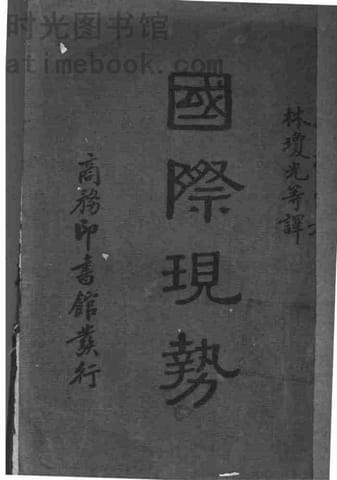 时光图书馆
atimebook.com
林瓊光等譯
國際現勢
商務印書館發行